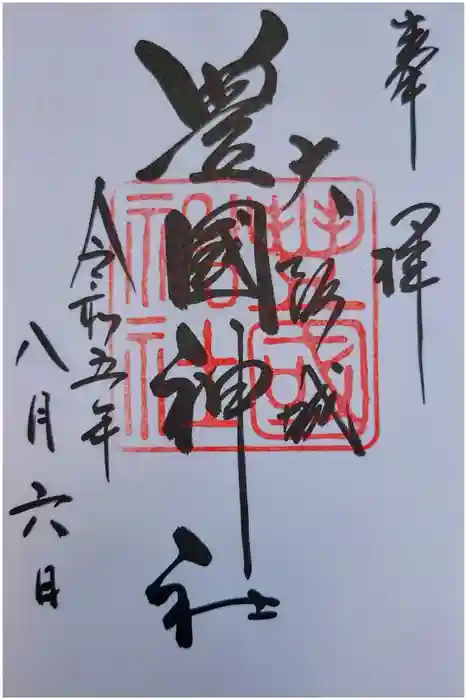 奉拝
大阪城
豊國神社
令和五年
八月六日
豊國
神社